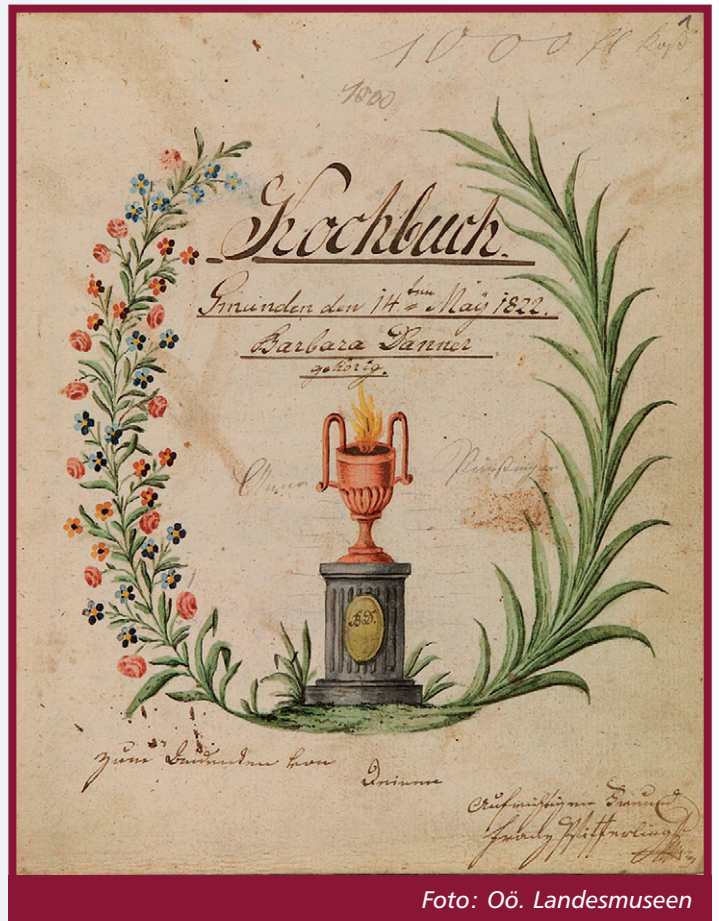 1
1000 fl
1800
Kochbuch.
Gmunden den 14ten May 1822.
Barbara Danner
gehörig.
Anna
BD.
zum Andenken von
Deinem
Aufrichtigen Freund
Franz
Foto: Oö. Landesmuseen